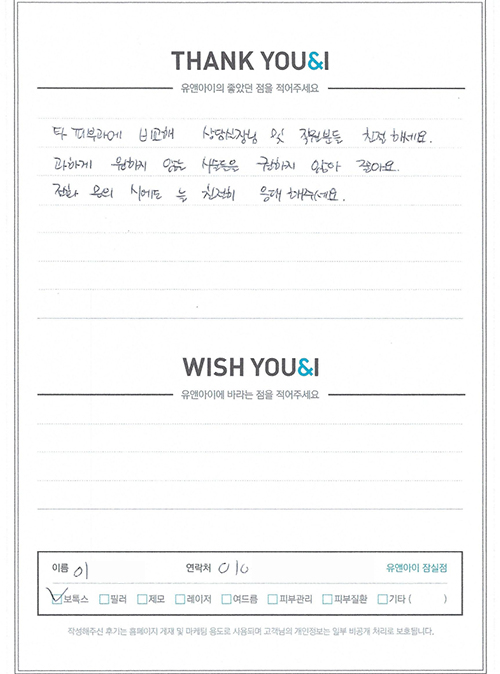 THANK YOU&I
유앤아이의 좋았던 점을 적어주세요
타 피부과에 비교해 상담실장님 및 직원분들 친절해세요.
과하게 원하지 않는 시술들은 권하지 않아 좋아요.
전화 응의 시에도 늘 친절히 응대 해주세요.
WISH YOU&I
유앤아이에 바라는 점을 적어주세요
이름 이 연락처 010 유앤아이 잠실점
보톡스 필러 제모 레이저 여드름 피부관리 피부질환 기타 ( )
작성해주신 후기는 홈페이지 게재 및 마케팅 용도로 사용되며 고객님의 개인정보는 일부 비공개 처리로 보호됩니다.